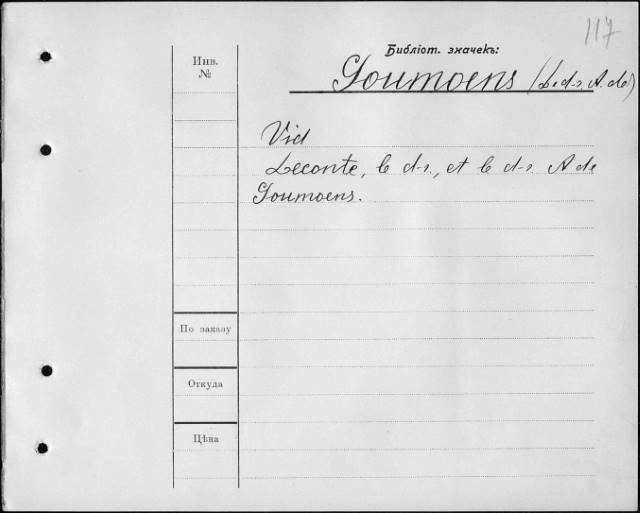 117
Библіот. значекъ:
Goumoens (Le d-r. A. de)
Инв.
№
Vid
Leconte, le d-r., et le d-r. A de
Goumoens.
По заказу
Откуда
Цѣна